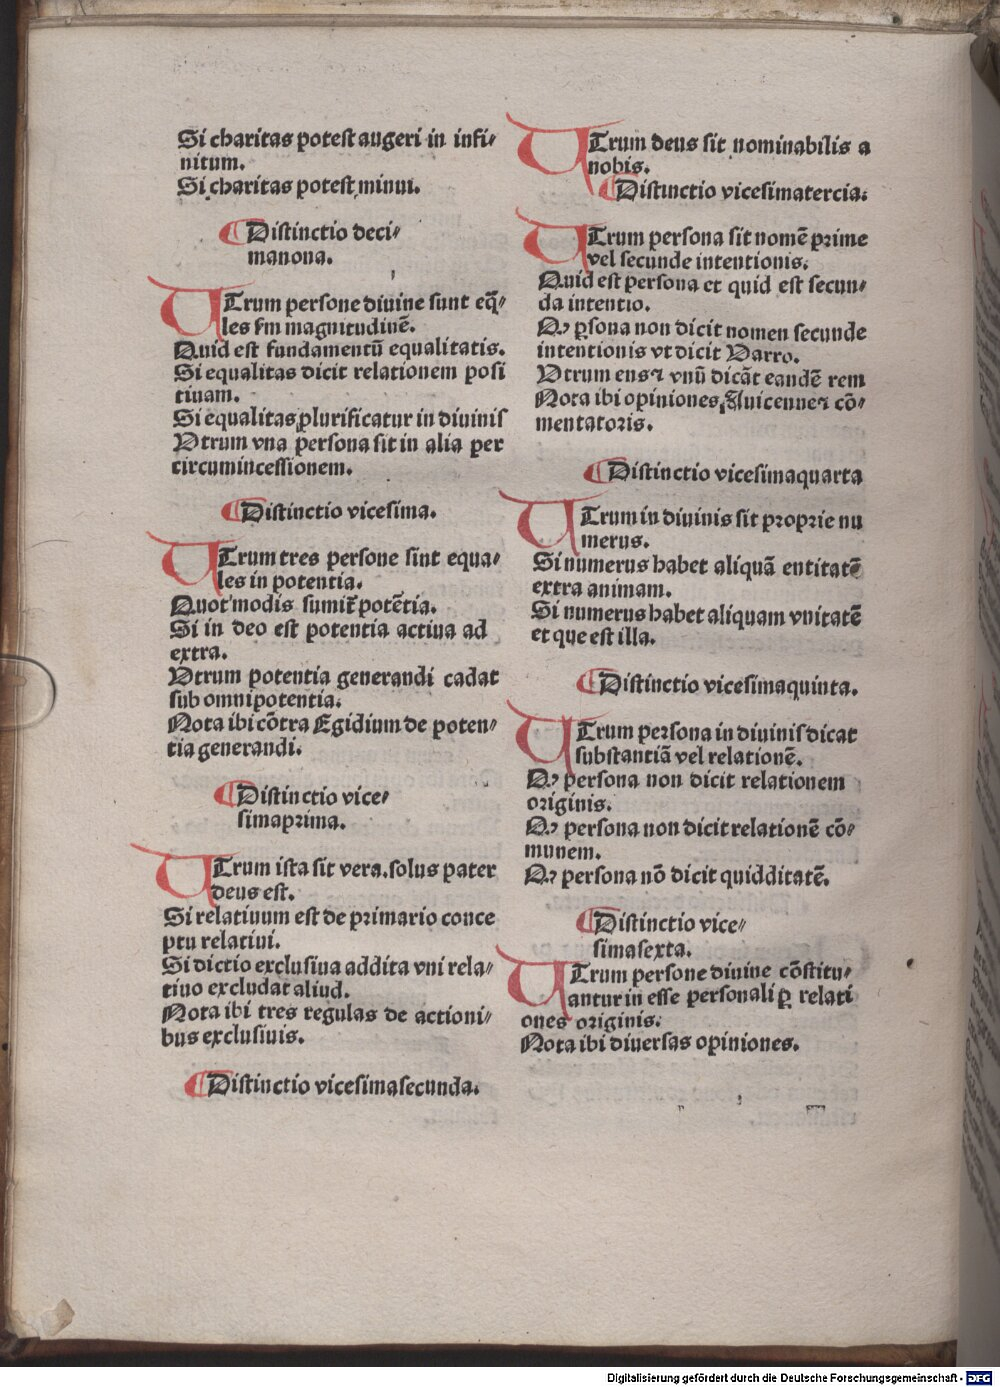 Si charitas potest augeri in infi⸗
nitum.
Si charitas potest minui.
¶Distinctio deci⸗
manona.
UTrum persone diuine sunt eq̄⸗
les sm magnitudinē.
Quid est fundamentū equalitatis.
Si equalitas dicit relationem posi
tiuam.
Si equalitas plurificatur in diuinis
Vtrum vna persona sit in alia per
circumincessionem.
¶Distinctio vicesima.
UTrum tres persone sint equa⸗
les in potentia.
Quot modis sumit̄ potētia.
Si in deo est potentia actiua ad
extra.
Vtrum potentia generandi cadat
sub omnipotentia.
Nota ibi cōtra Egidium de poten⸗
tia generandi.
¶Distinctio vice⸗
simaprima.
UTrum ista sit vera. solus pater
deus est.
Si relatiuum est de primario conce
ptu relatiui.
Si dictio exclusiua addita vni rela⸗
tiuo excludat aliud.
Nota ibi tres regulas de actioni⸗
bus exclusiuis.
¶Distinctio vicesimasecunda.
UTrum deus sit nominabilis a
nobis.
¶Distinctio vicesimatercia.
UTrum persona sit nomē prime
vel secunde intentionis.
Quid est persona et quid est secun⸗
da intentio.
Qꝫ ꝑsona non dicit nomen secunde
intentionis vt dicit Varro.
Vtrum ens ⁊ vnū dicāt eandē rem
Nota ibi opiniones Auicenne ⁊ cō⸗
mentatoris.
¶Distinctio vicesimaquarta
UTrum in diuinis sit proprie nu
merus.
Si numerus habet aliquā entitatē
extra animam.
Si numerus habet aliquam vnitatē
et que est illa.
¶Distinctio vicesimaquinta.
UTrum persona in diuinis dicat
substantiā vel relationē.
Qꝫ persona non dicit relationem
originis.
Qꝫ persona non dicit relationē cō⸗
munem.
Qꝫ persona nō dicit quidditatē.
¶Distinctio vice⸗
simasexta.
UTrum persone diuine cōstitu⸗
antur in esse personali ꝑ relati
ones originis.
Nota ibi diuersas opiniones.
Digitalisierung gefördert durch die Deutsche Forschungsgemeinschaft - DFG